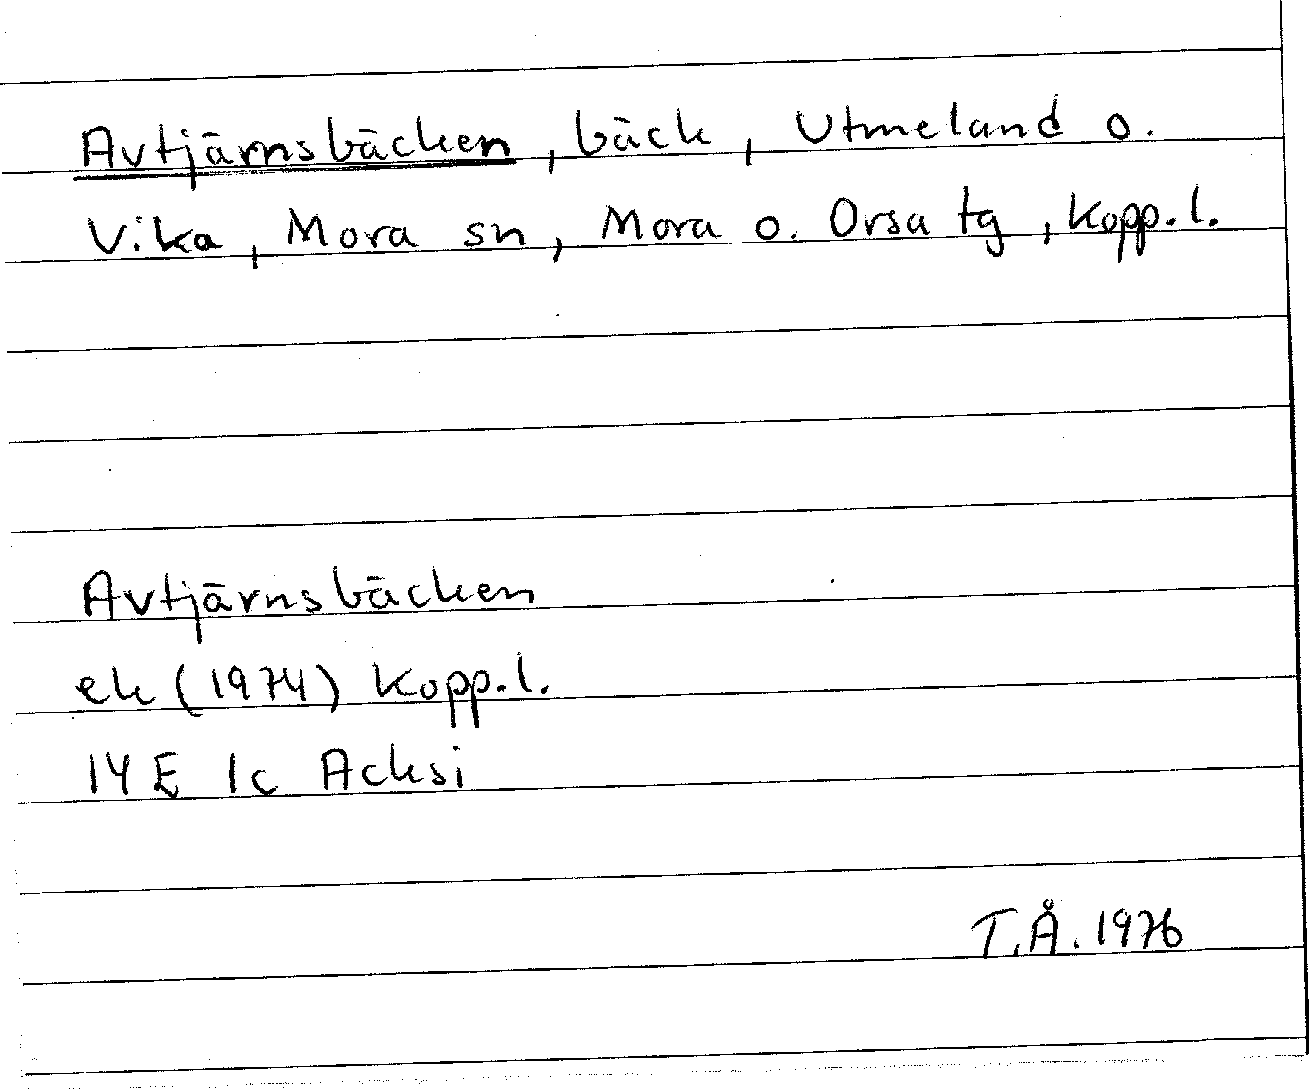 Avtjärnsbäcken, bäck, Utmeland o.
Vika, Mora sn, Mora o. Orsa tg, Kopp.l.
Avtjärnsbäcken
ek (1974) Kopp.l.
14 E 1c Acksi
T.Å. 1976